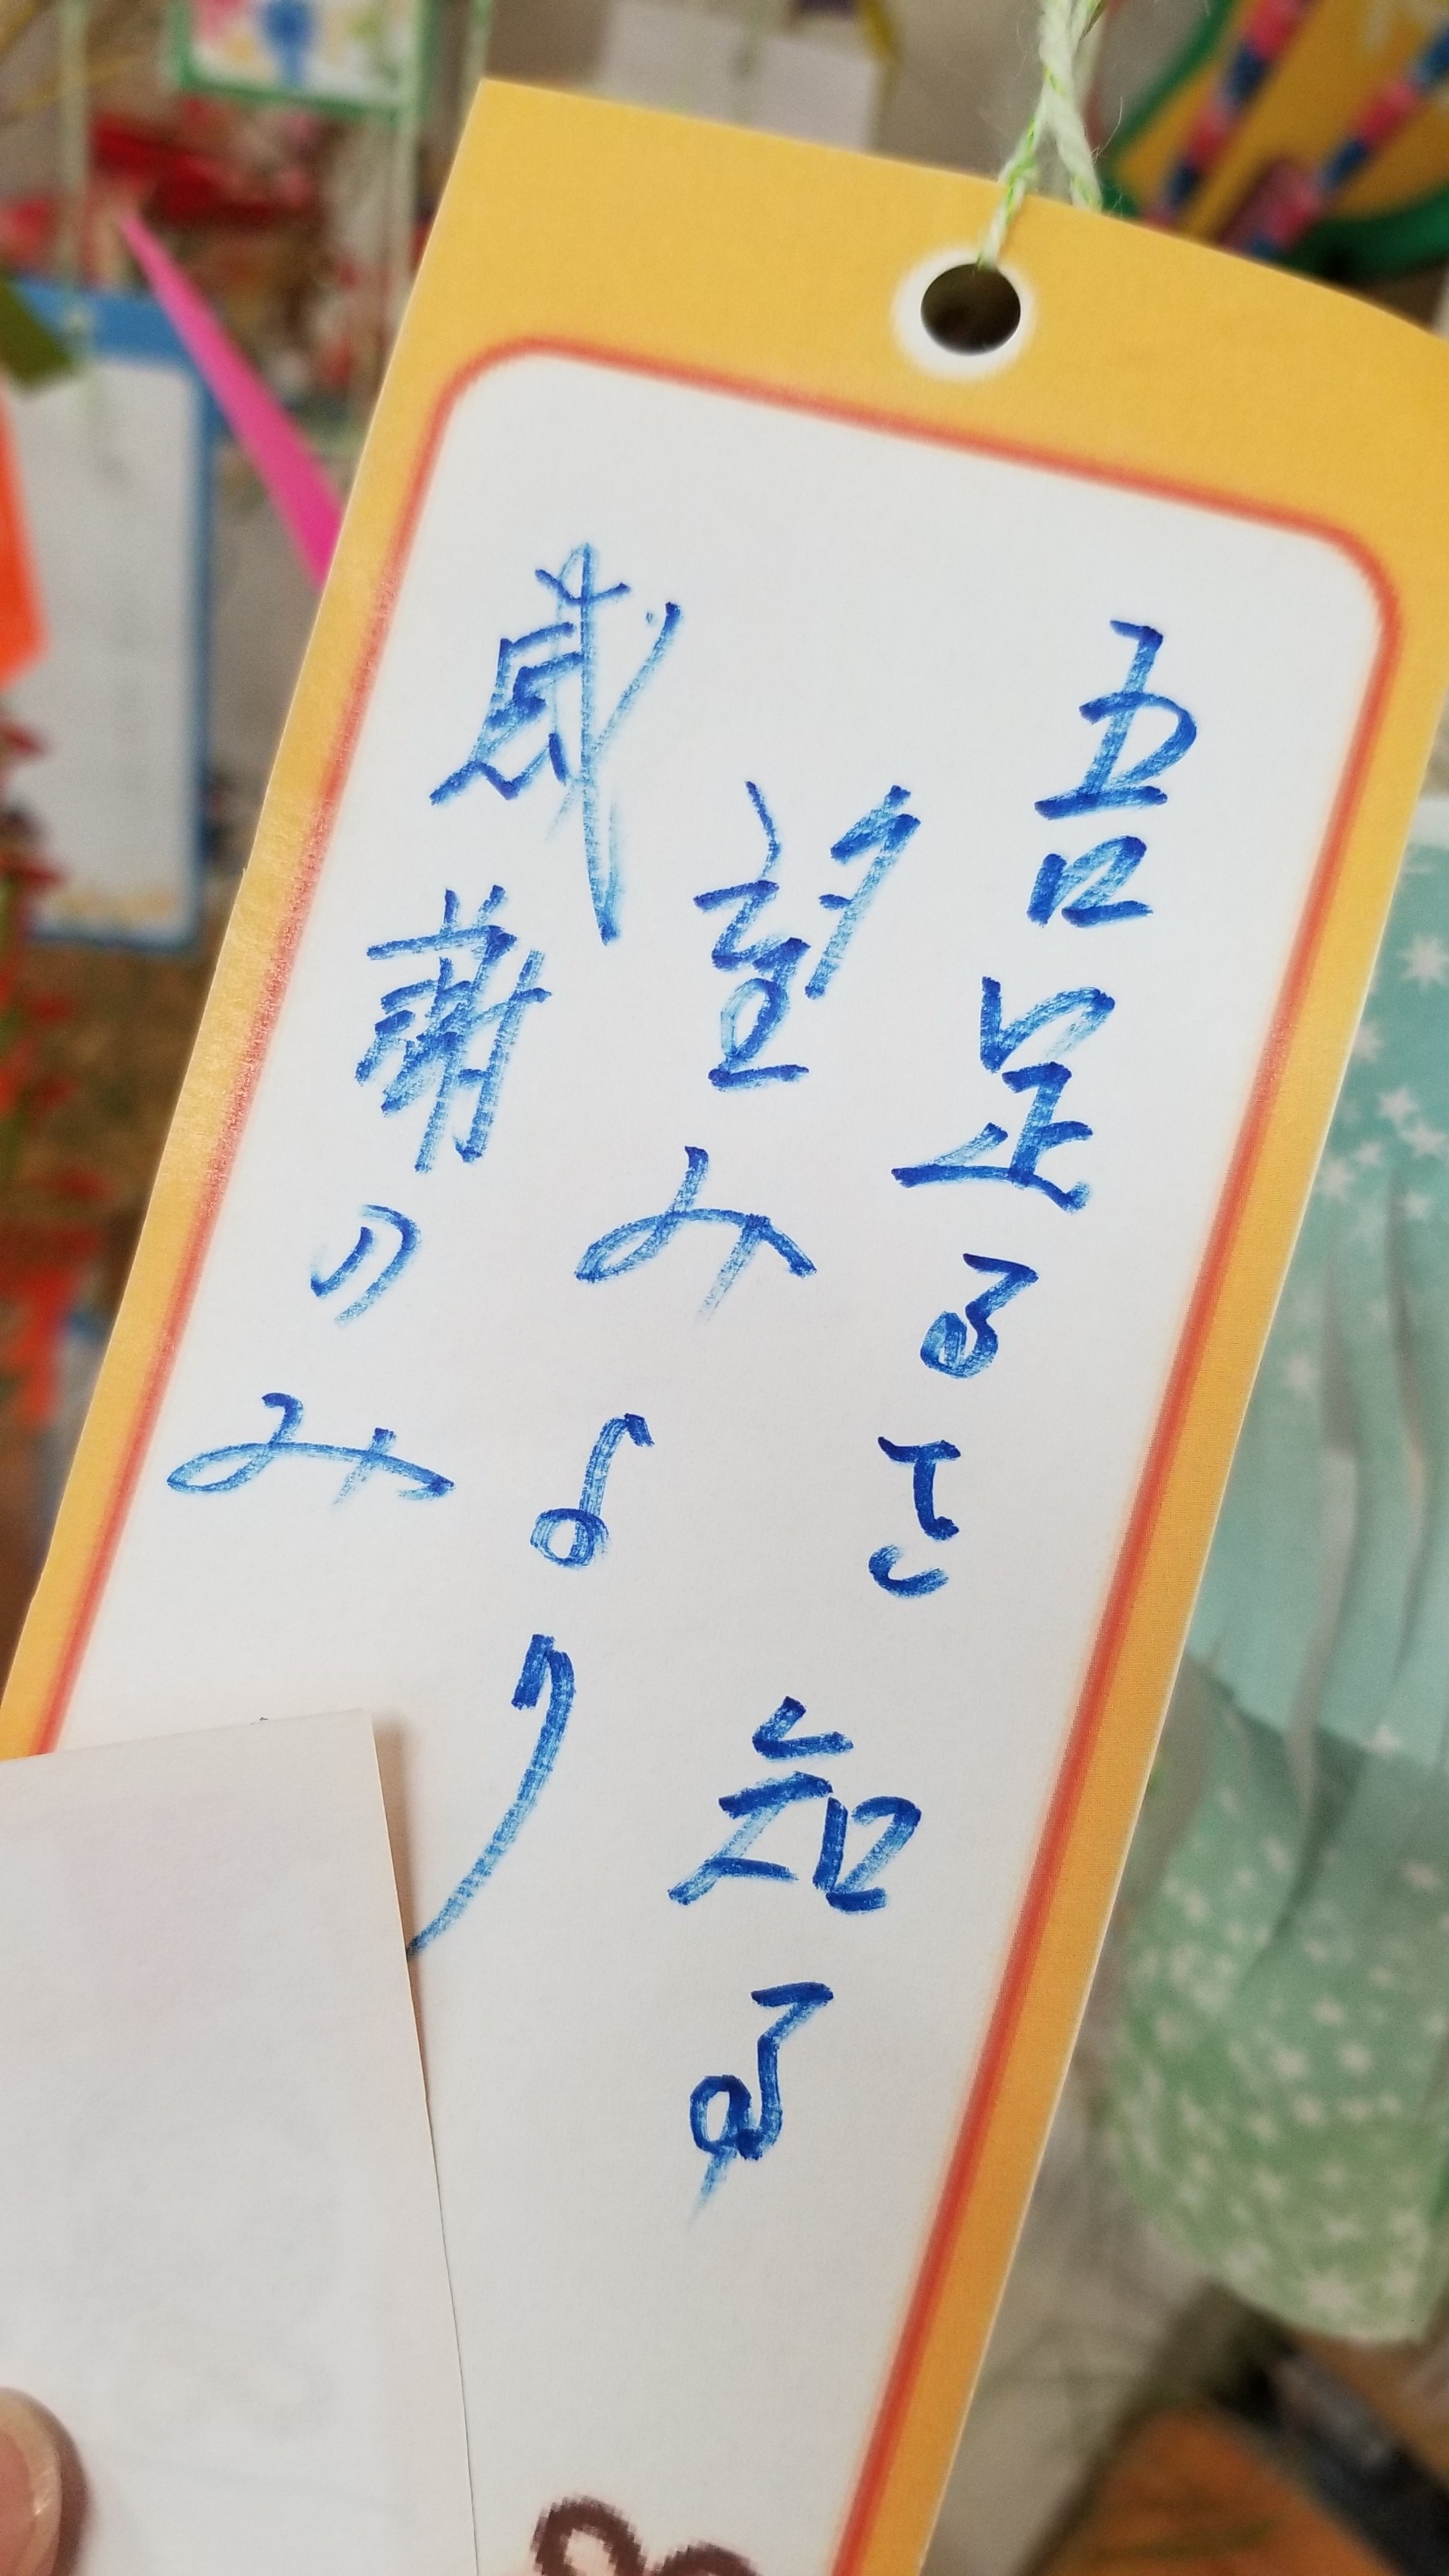 吾足るを知る
望みより
感謝のみ